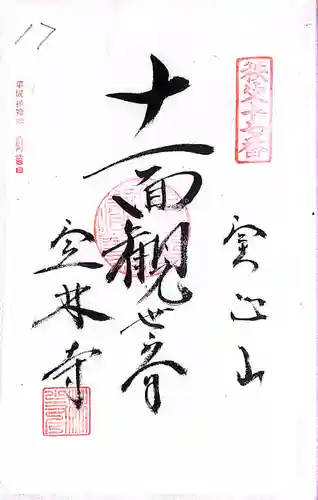 17
秩父十七番
實正山
十一面觀世音
定林寺
平成